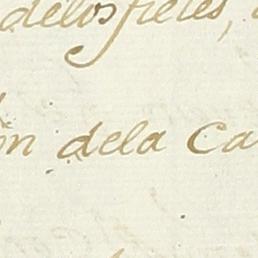 delos fieles,
on dela Ca